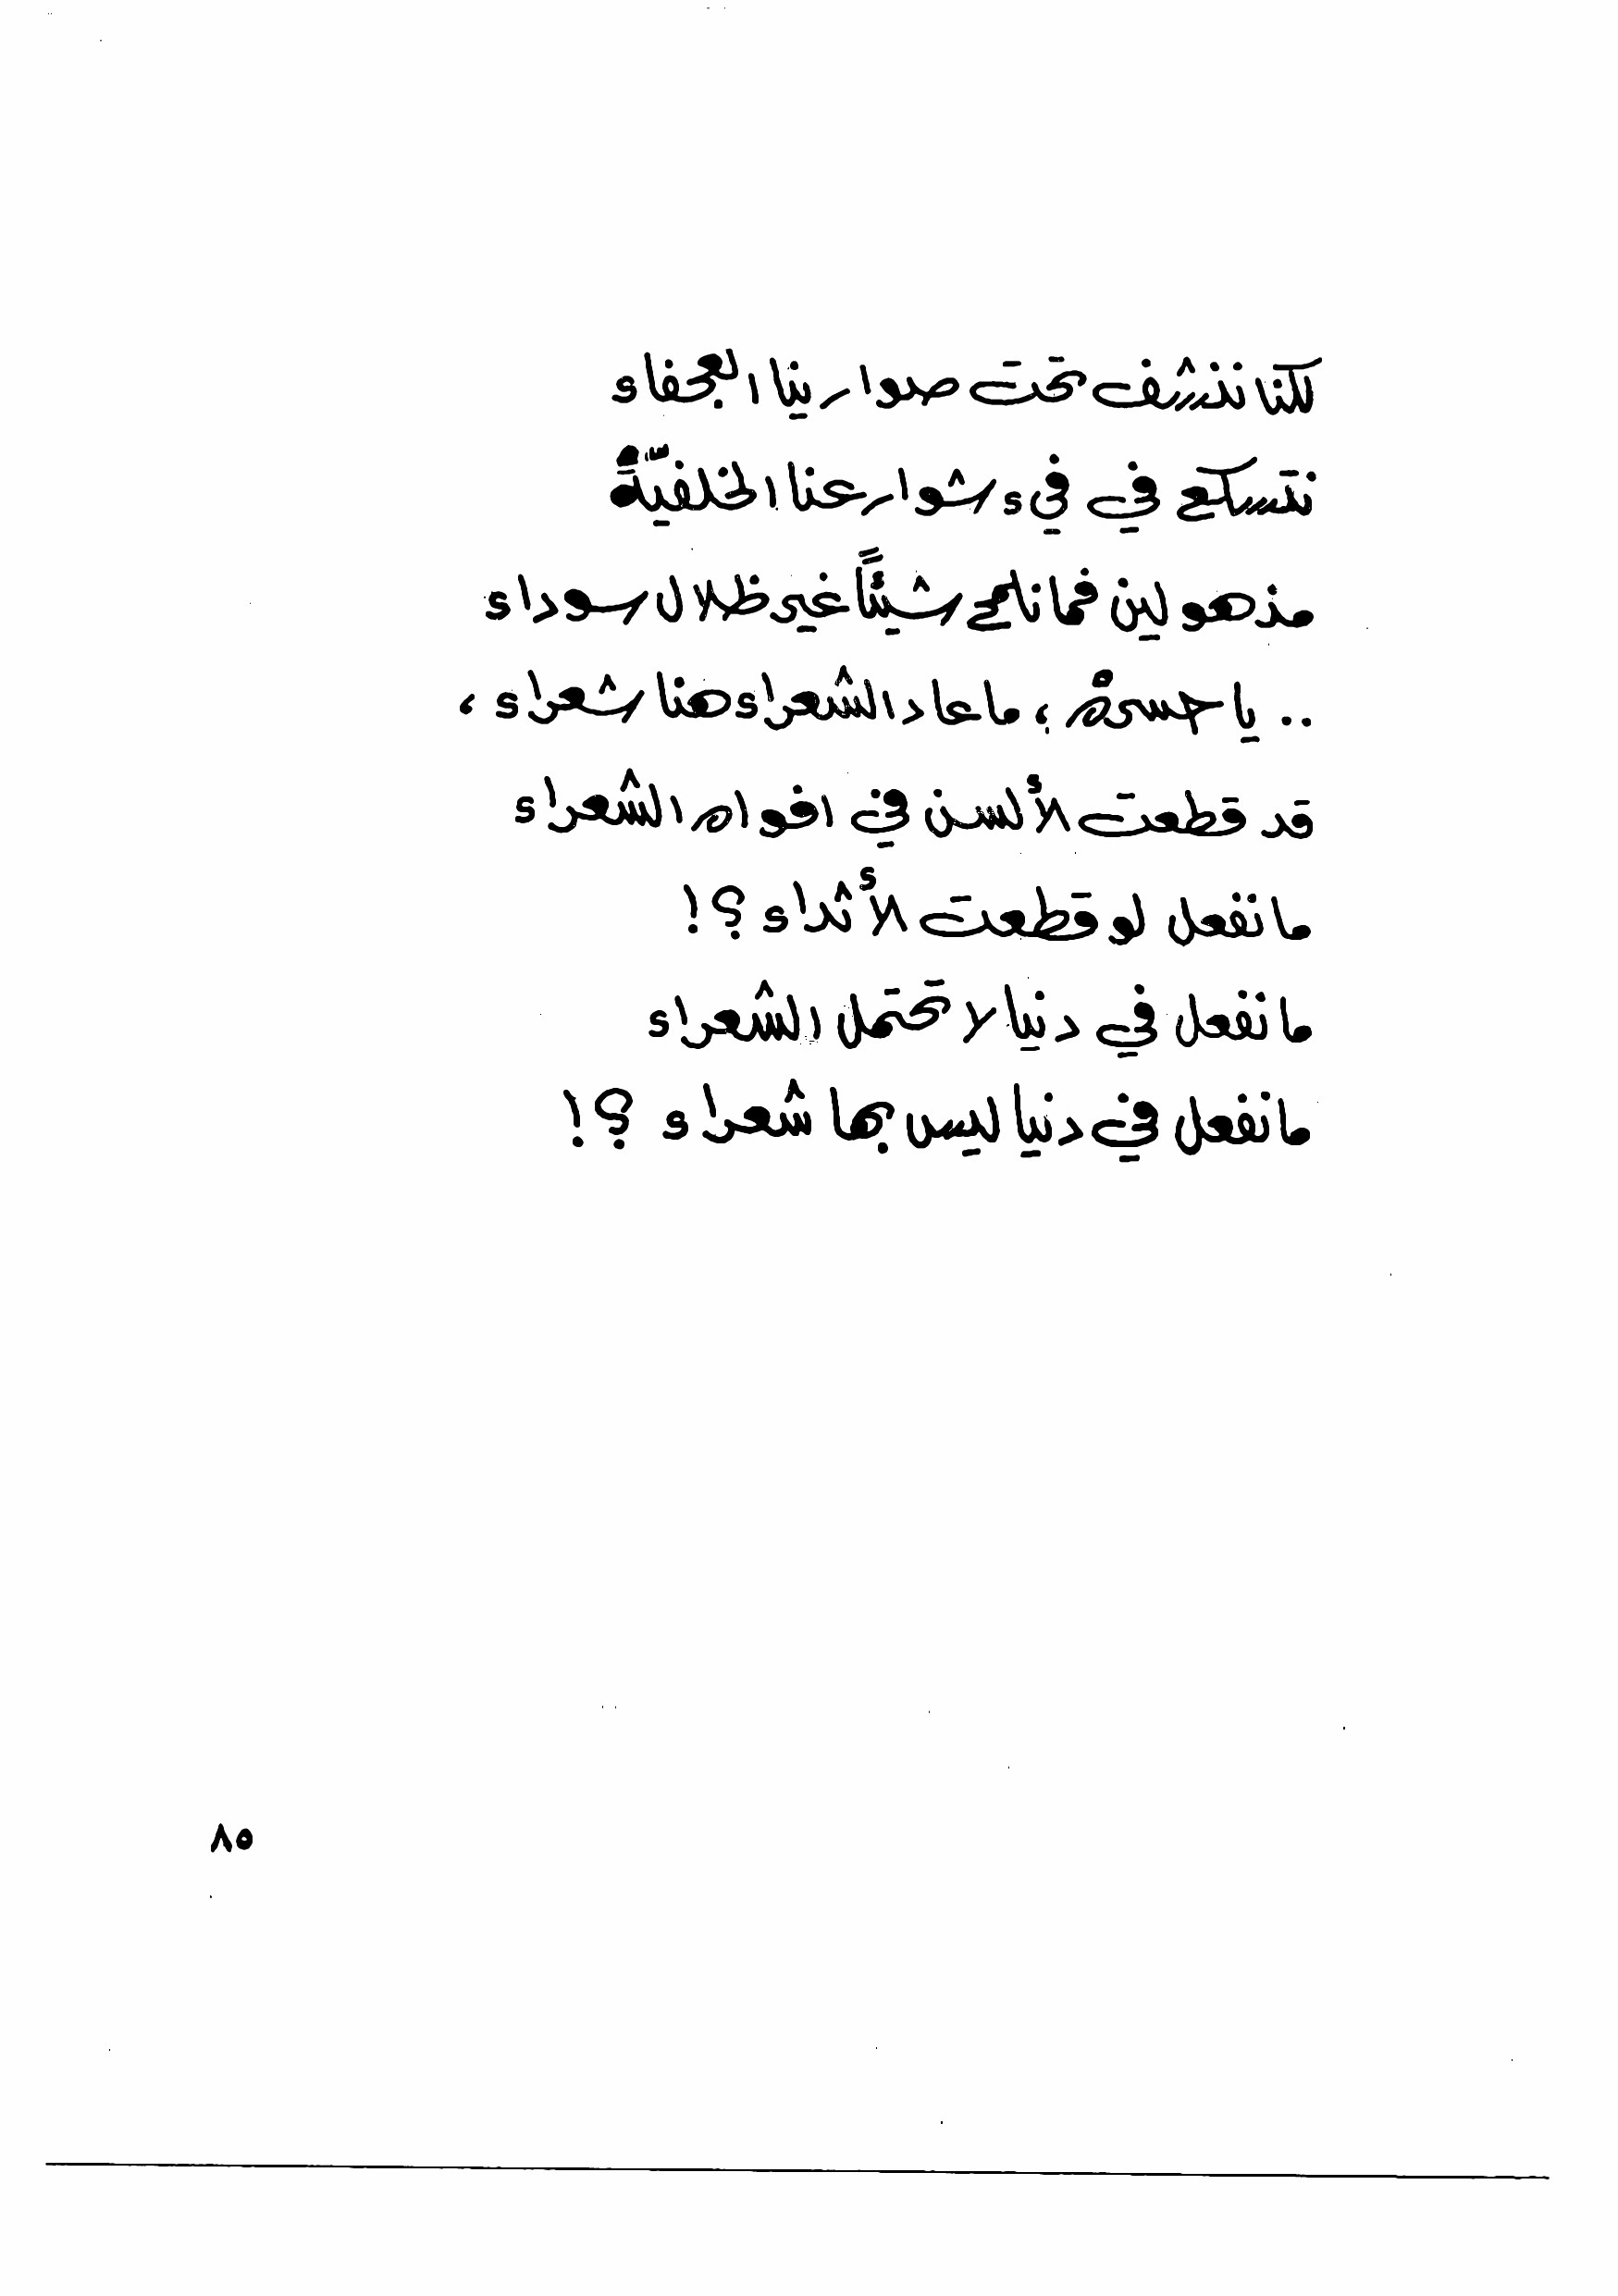 لكنا ننشف تحت صوارينا العجفاء
نتسكع في فيء شوارعنا الخلفيّةْ
مذهولين فما نلمح شيئًا غير ظلال سوداء
.. يا حسرهْ ، ما عاد الشعراء هنا شعراء ،
قد قطعت الألسن في افواه الشعراء
ما نفعل لو قطعت الأثداء ؟!
ما نفعل في دنيا لا تحتمل الشعراء
ما نفعل في دنيا ليس بها شعراء ؟!
٨٥